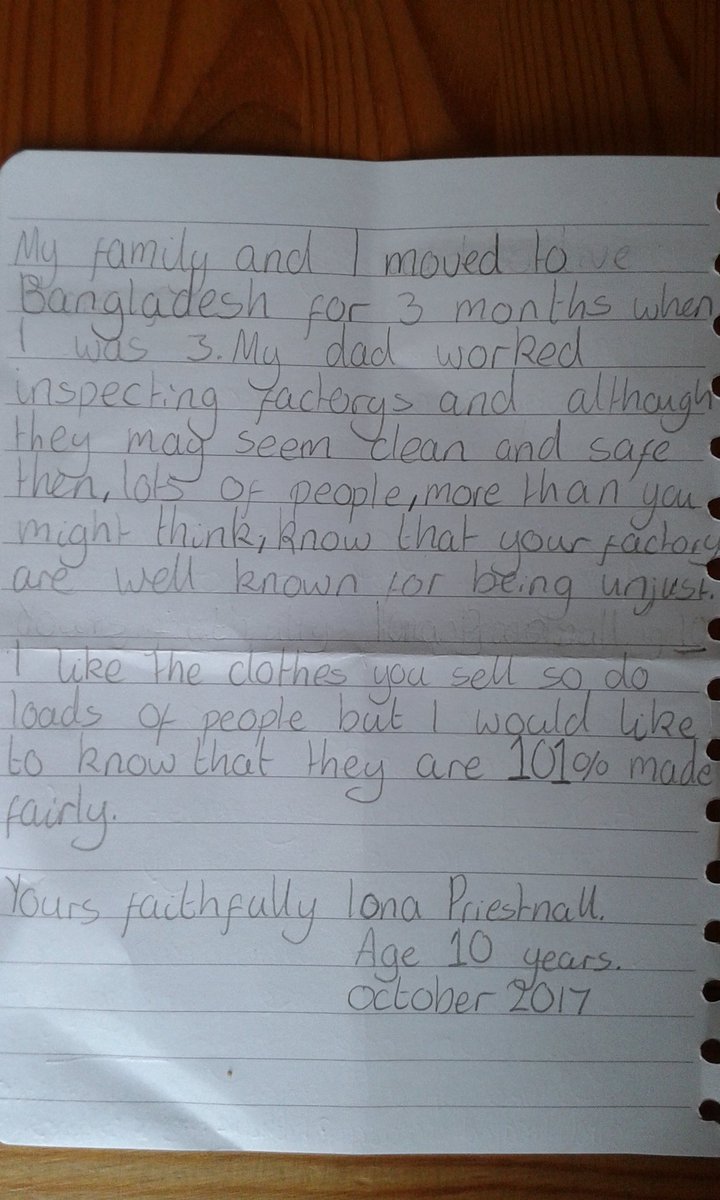 My family and I moved to
Bangladesh for 3 months when
I was 3. My dad worked
inspecting factorys and although
they may seem clean and safe
then, lots of people, more than you
might think, know that your factory
are well known for being unjust.
I like the clothes you sell so do
loads of people but I would like
to know that they are 101% made
fairly.
Yours faithfully Iona Priestnall.
Age 10 years.
October 2017